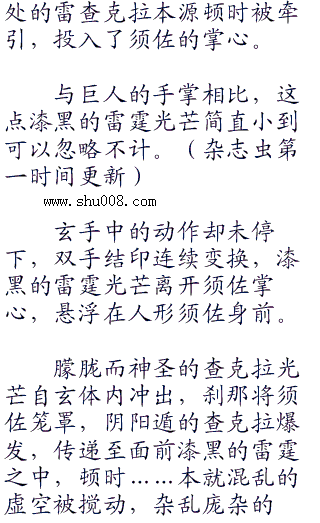 处的雷查克拉本源顿时被牵
引，投入了须佐的掌心。
与巨人的手掌相比，这
点漆黑的雷霆光芒简直小到
可以忽略不计。（杂志虫第
一时间更新）
www.shu008.com
玄手中的动作却未停
下，双手结印连续变换，漆
黑的雷霆光芒离开须佐掌
心，悬浮在人形须佐身前。
朦胧而神圣的查克拉光
芒自玄体内冲出，刹那将须
佐笼罩，阴阳遁的查克拉爆
发，传递至面前漆黑的雷霆
之中，顿时……本就混乱的
虚空被搅动，杂乱庞杂的